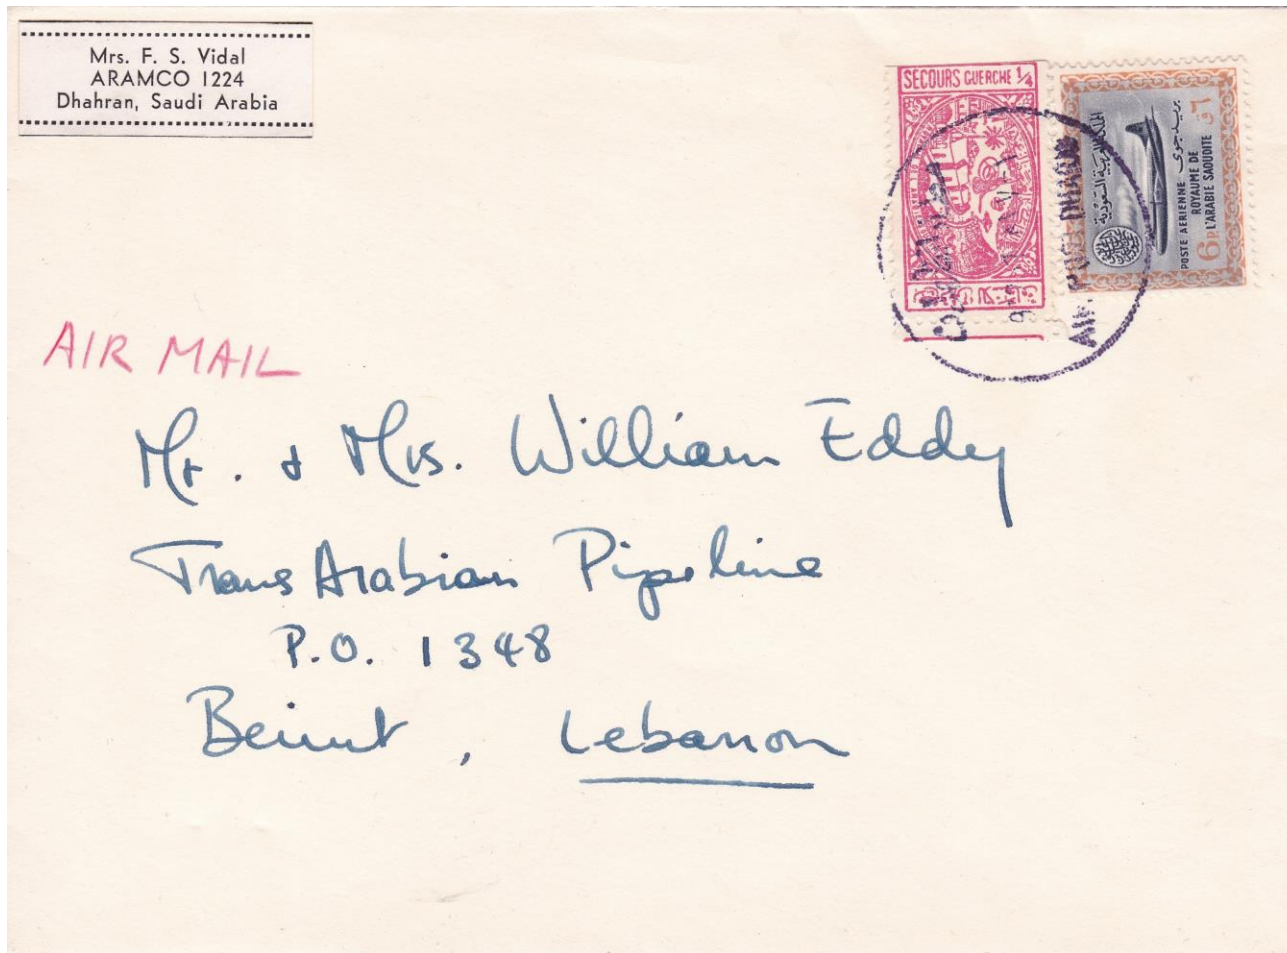 Mrs. F. S. Vidal
ARAMCO 1224
Dhahran, Saudi Arabia
SECOURS GUERCHE 1/4
بريد جوى
المملكة العربية السعودية
٦ ق
POSTE AERIENNE
ROYAUME DE
L'ARABIE SAOUDITE
6 P
AIR MAIL
Mr. & Mrs. William Eddy
Trans Arabian Pipeline
P.O. 1348
Beirut, Lebanon